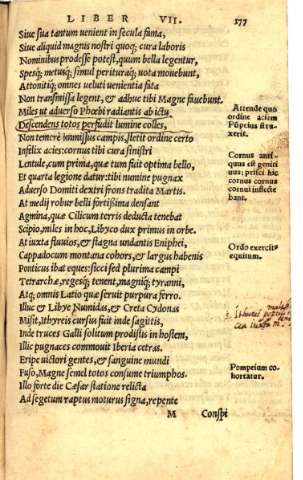 LIBER VII. 177
Siue sua tantum uenient in secula fama,
Siue aliquid magnis nostri quoq; cura laboris
Nominibus prodesse potest, quum bella legentur,
Spesq; metusq; simul perituraq; uota mouebunt,
Attonitiq; omnes ueluti uenientia fata
Non transmissa legent, & adhuc tibi Magne fauebunt.
Miles ut aduerso Phœbi radiatus ab ictu
Descendens totos perfudit lumine colles,
Non temere immissus campis, stetit ordine certo
Infelix acies: cornus tibi cura sinistri
Lentule, cum prima, quæ tum fuit optima bello,
Et quarta legione datur: tibi numine pugnax
Aduerso Domiti dextri frons tradita Martis.
At medij robur belli fortissima densant
Agmina, quæ Cilicum terris deducta tenebat
Scipio, miles in hoc, Libyco dux primus in orbe.
At iuxta fluuios, & stagna undantis Eniphei,
Cappadocum montana cohors, & largus habenis
Ponticus ibat eques: sicci sed plurima campi
Tetrarchæ, regesq; tenent, magniq; tyranni,
Atq; omnis Latio quæ seruit purpura ferro.
Illuc & Libye Numidas, & Creta Cydonas
Misit, Ithyreis cursus fuit inde sagittis,
Inde truces Galli solitum prodistis in hostem,
Illic pugnaces commouit Iberia cetras.
Eripe uictori gentes, & sanguine mundi
Fuso, Magne semel totos consume triumphos.
Illo forte die Cæsar statione relicta
Ad segetum raptus moturus signa, repente
M Conspi
Attende quo
ordine aciem
Põpeius stru-
xerit.
Cornus anti-
quus est geniti
uus: prisci hic
cornus cornus
cornui inflecte
bant.
Ordo exercitꝰ
equitum.
Pompeium co-
hortatur.